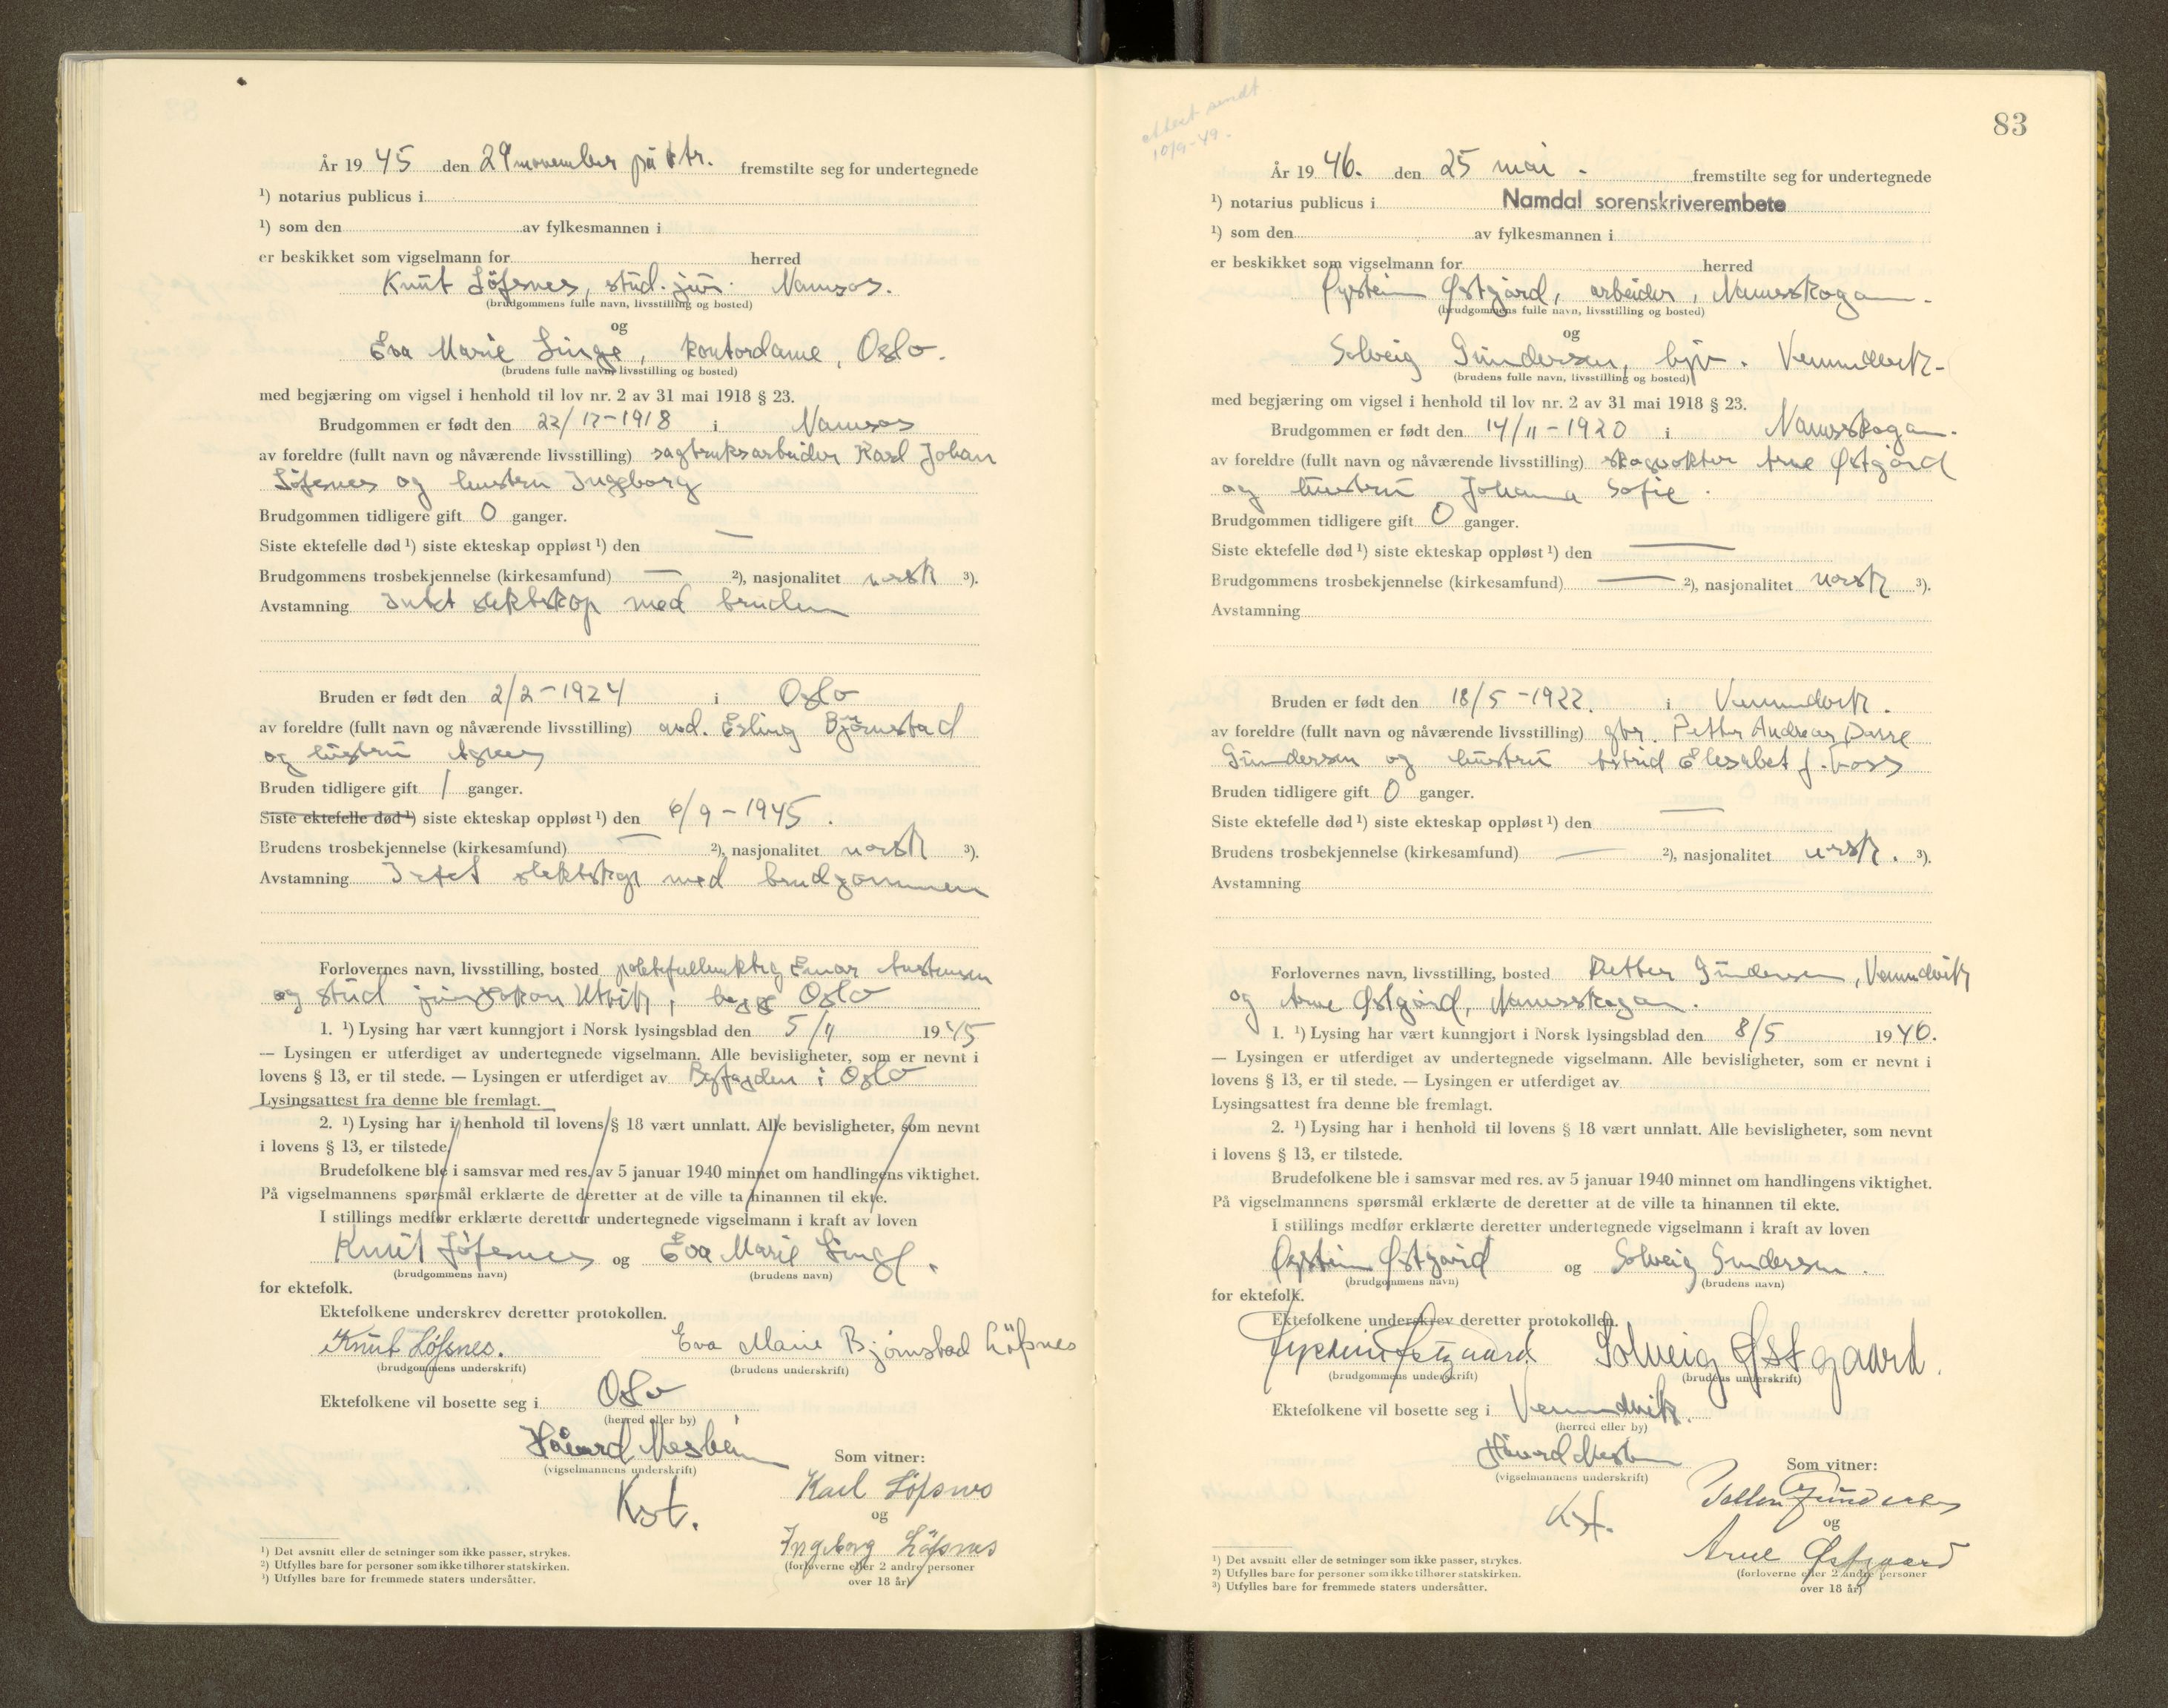 År 19 45 den 29 november på ktr. fremstilte seg for undertegnede
¹) notarius publicus i
¹) som den av fylkesmannen i
er beskikket som vigselmann for herred
Knut Löfsnes, stud. jur. Namsos.
(brudgommens fulle navn, livsstilling og bosted)
og
Eva Marie Linge, kontordame, Oslo.
(brudens fulle navn, livsstilling og bosted)
med begjæring om vigsel i henhold til lov nr. 2 av 31 mai 1918 § 23.
Brudgommen er født den 22/12-1918 i Namsos
av foreldre (fullt navn og nåværende livsstilling) sagbruksarbeider Karl Johan
Löfsnes og hustru Ingeborg
Brudgommen tidligere gift 0 ganger.
Siste ektefelle død ¹) siste ekteskap oppløst ¹) den —
Brudgommens trosbekjennelse (kirkesamfund) — ²), nasjonalitet norsk ³).
Avstamning Intet slektskap med bruden
Bruden er født den 2/2-1924 i Oslo
av foreldre (fullt navn og nåværende livsstilling) Erling Björnstad
og hustru Agnes
Bruden tidligere gift 1 ganger.
Siste ektefelle død ¹) siste ekteskap oppløst ¹) den 6/9-1945.
Brudens trosbekjennelse (kirkesamfund) — ²), nasjonalitet norsk ³).
Avstamning Intet slektskap med brudgommen
Forlovernes navn, livsstilling, bosted politifullmektig Einar
og stud jur Utvik, begge Oslo
1. ¹) Lysing har vært kunngjort i Norsk lysingsblad den 5/11 1945
— Lysingen er utferdiget av undertegnede vigselmann. Alle bevisligheter, som er nevnt i
lovens § 13, er til stede. — Lysingen er utferdiget av Byfogden i Oslo
Lysingsattest fra denne ble fremlagt.
2. ¹) Lysing har i henhold til lovens § 18 vært unnlatt. Alle bevisligheter, som nevnt
i lovens § 13, er tilstede.
Brudefolkene ble i samsvar med res. av 5 januar 1940 minnet om handlingens viktighet.
På vigselmannens spørsmål erklærte de deretter at de ville ta hinannen til ekte.
I stillings medfør erklærte deretter undertegnede vigselmann i kraft av loven
Knut Löfsnes og Eva Marie Linge.
(brudgommens navn) (brudens navn)
for ektefolk.
Ektefolkene underskrev deretter protokollen.
Knut Löfsnes. Eva Marie Bjørnstad Löfsnes
(brudgommens underskrift) (brudens underskrift)
Ektefolkene vil bosette seg i Oslo
(herred eller by)
Håvard
(vigselmannens underskrift)
Kst.
Som vitner:
Karl Löfsnes
og
Ingeborg Löfsnes
(forloverne eller 2 andre personer
over 18 år)
¹) Det avsnitt eller de setninger som ikke passer, strykes.
²) Utfylles bare for personer som ikke tilhører statskirken.
³) Utfylles bare for fremmede staters undersåtter.
attest sendt
10/9-49.
83
År 19 46. den 25 mai - fremstilte seg for undertegnede
¹) notarius publicus i Namdal sorenskriverembete
¹) som den av fylkesmannen i
er beskikket som vigselmann for herred
Øystein Østgård, arbeider, Namsskogan.
(brudgommens fulle navn, livsstilling og bosted)
og
Solveig Gundersen, hjv. Vemundvik.
(brudens fulle navn, livsstilling og bosted)
med begjæring om vigsel i henhold til lov nr. 2 av 31 mai 1918 § 23.
Brudgommen er født den 14/11-1920 i Namsskogan.
av foreldre (fullt navn og nåværende livsstilling) skogvokter Arne Østgård
og hustru Johanna Sofie.
Brudgommen tidligere gift 0 ganger.
Siste ektefelle død ¹) siste ekteskap oppløst ¹) den —
Brudgommens trosbekjennelse (kirkesamfund) — ²), nasjonalitet norsk ³).
Avstamning
Bruden er født den 18/5-1922. i Vemundvik.
av foreldre (fullt navn og nåværende livsstilling) gbr. Petter Andreas
Gundersen og hustru Astrid Elesabet f.
Bruden tidligere gift 0 ganger.
Siste ektefelle død ¹) siste ekteskap oppløst ¹) den —
Brudens trosbekjennelse (kirkesamfund) — ²), nasjonalitet norsk. ³).
Avstamning
Forlovernes navn, livsstilling, bosted Petter Gundersen, Vemundvik
og Arne Østgård, Namsskogan.
1. ¹) Lysing har vært kunngjort i Norsk lysingsblad den 8/5 1946.
— Lysingen er utferdiget av undertegnede vigselmann. Alle bevisligheter, som er nevnt i
lovens § 13, er til stede. — Lysingen er utferdiget av
Lysingsattest fra denne ble fremlagt.
2. ¹) Lysing har i henhold til lovens § 18 vært unnlatt. Alle bevisligheter, som nevnt
i lovens § 13, er tilstede.
Brudefolkene ble i samsvar med res. av 5 januar 1940 minnet om handlingens viktighet.
På vigselmannens spørsmål erklærte de deretter at de ville ta hinannen til ekte.
I stillings medfør erklærte deretter undertegnede vigselmann i kraft av loven
Øystein Østgård og Solveig Gundersen.
(brudgommens navn) (brudens navn)
for ektefolk.
Ektefolkene underskrev deretter protokollen.
Øystein Østgaard Solveig Østgaard.
(brudgommens underskrift) (brudens underskrift)
Ektefolkene vil bosette seg i Vemundvik.
(herred eller by)
Håvard
(vigselmannens underskrift)
Kst.
Som vitner:
Petter Gundersen
og
Arne Østgaard
(forloverne eller 2 andre personer
over 18 år)
¹) Det avsnitt eller de setninger som ikke passer, strykes.
²) Utfylles bare for personer som ikke tilhører statskirken.
³) Utfylles bare for fremmede staters undersåtter.